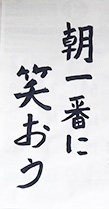 朝一番に
笑おう